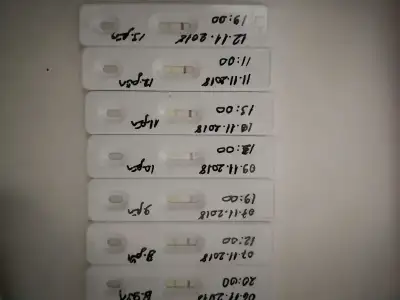 06.11.2018 8.gün
20:00
07.11.2018 8.gün
12:00
07.11.2018 9.gün
19:00
09.11.2018 10.gün
12:00
10.11.2018 11.gün
15:00
11.11.2018 12.gün
11:00
12.11.2018 13.gün
19:00